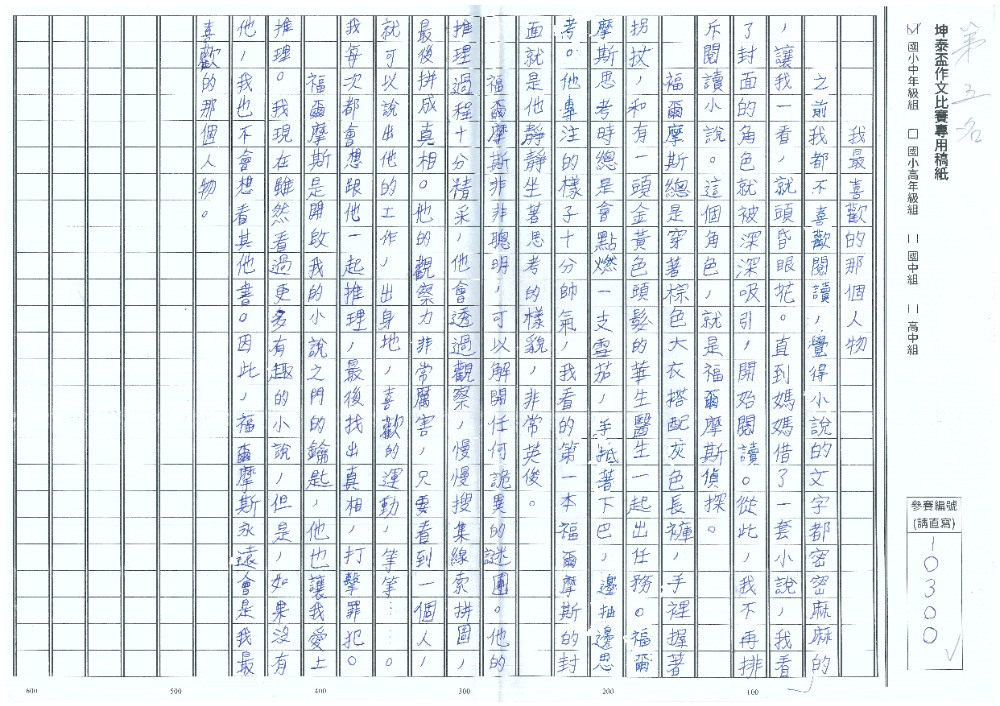 第五名
坤泰盃作文比賽專用稿紙
國小中年級組 □ 國小高年級組 國中組 高中組
參賽編號
(請直寫)
10300
我最喜歡的那個人物
之前我都不喜歡閱讀,覺得小說的文字都密密麻麻的
,讓我一看,就頭昏眼花。直到媽媽借了一套小說,我看
了封面的角色就被深深吸引,開始閱讀。從此,我不再排
斥閱讀小說。這個角色,就是福爾摩斯偵探。
福爾摩斯總是穿著棕色大衣搭配灰色長褲,手裡握著
拐杖,和有一頭金黃色頭髮的華生醫生一起出任務。福爾
摩斯思考時總是會點燃一支雪茄,手抵著下巴,邊抽邊思
考。他專注的樣子十分帥氣,我看的第一本福爾摩斯的封
面就是他靜靜坐著思考的樣貌,非常英俊。
福爾摩斯非非聰明,可以解開任何詭異的謎團。他的
推理過程十分精采,他會透過觀察,慢慢搜集線索拼圖,
最後拼成真相。他的觀察力非常厲害,只要看到一個人,
就可以說出他的工作,出身地,喜歡的運動,等等……。
我每次都會想跟他一起推理,最後找出真相,打擊罪犯。
福爾摩斯是開啟我的小說之門的鑰匙,他也讓我愛上
推理。我現在雖然看過更多有趣的小說,但是,如果沒有
他,我也不會想看其他書。因此,福爾摩斯永遠會是我最
喜歡的那個人物。
600
500
400
300
200
100